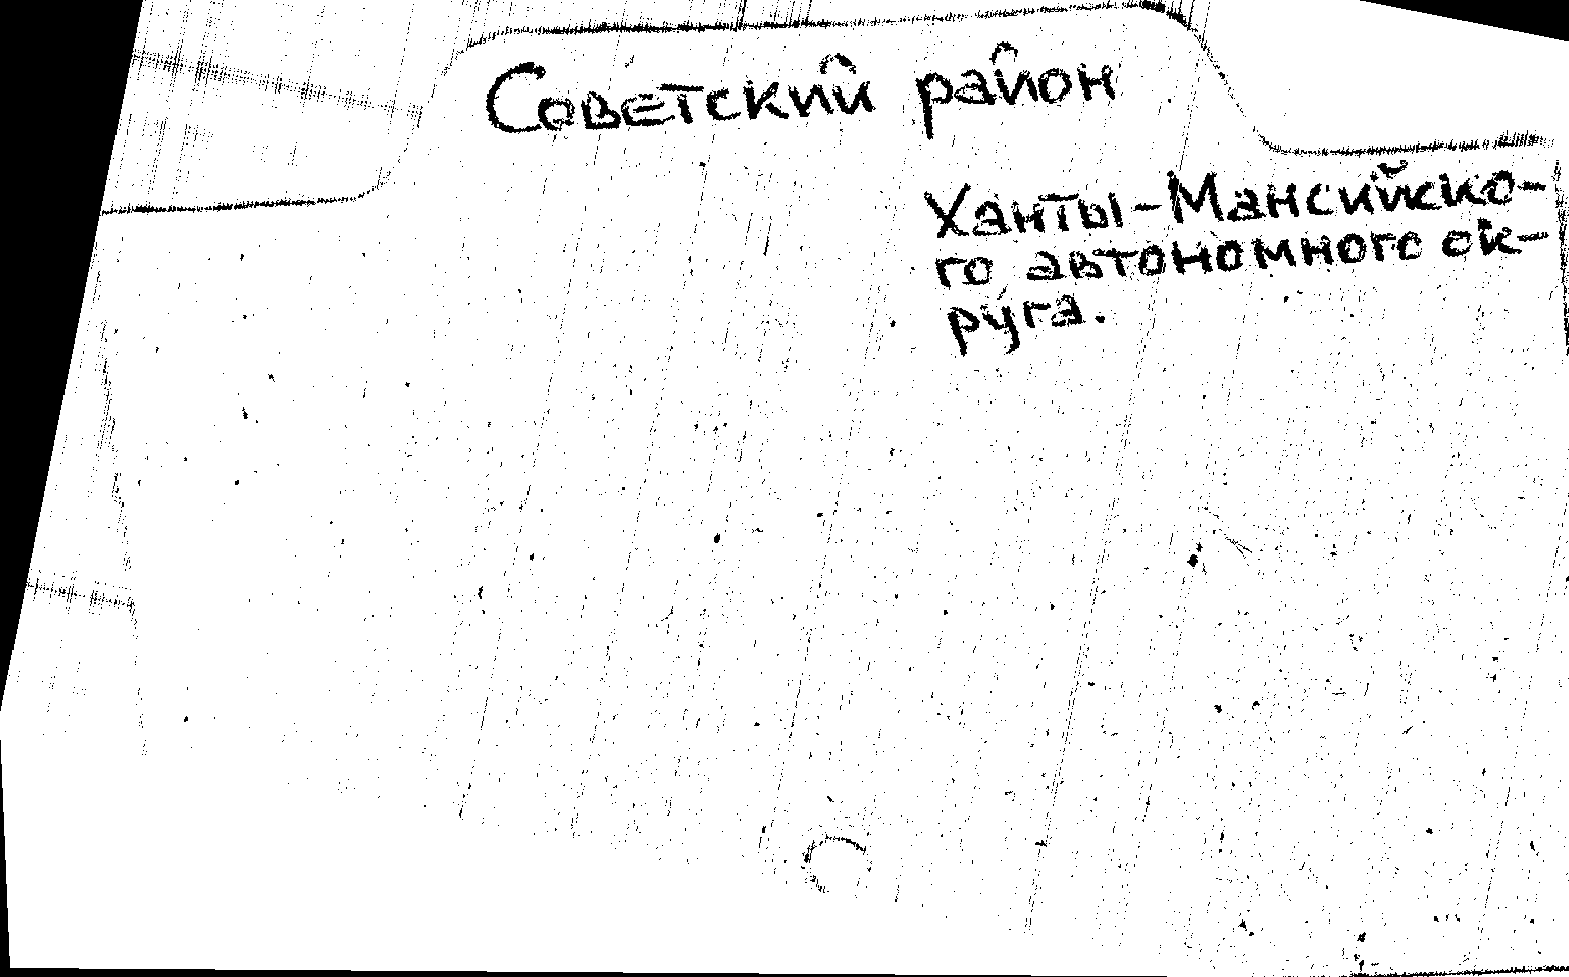 Советский район
Ханты-Мансийско-
го автономного ок-
руга.